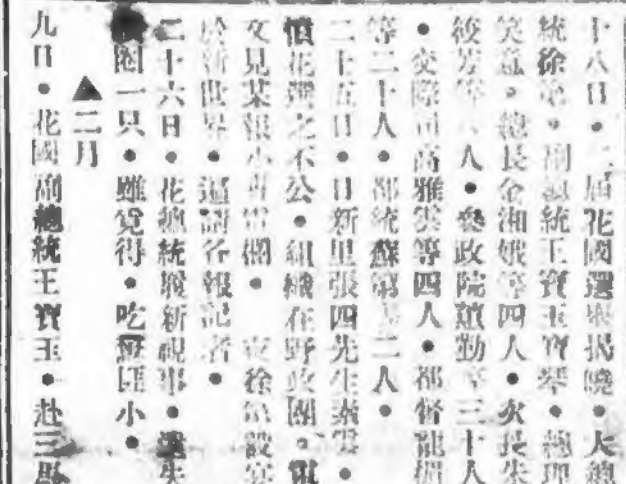 十八日●二屆花國選舉揭曉●大總
統徐第●副總統王寶玉寶琴●總理
笑意●總長金湘娥等四人●次長朱
後芳等八人●參政院蘊勤等三十人
●交際司高雅雲等四人●都督龍媚
等二十人●都統蘇第等二人●
二十五日●日新里張四先生素雲●
憤花選之不公●組織在野政團●電
文見某報小專電欄● 夜徐第設宴
於新世界●遍請各報記者●
二十六日●花總統履新視事●遺失
圈一只●雖覓得●吃壓匪小●
▲二月
九日●花國副總統王寶玉●赴三馬